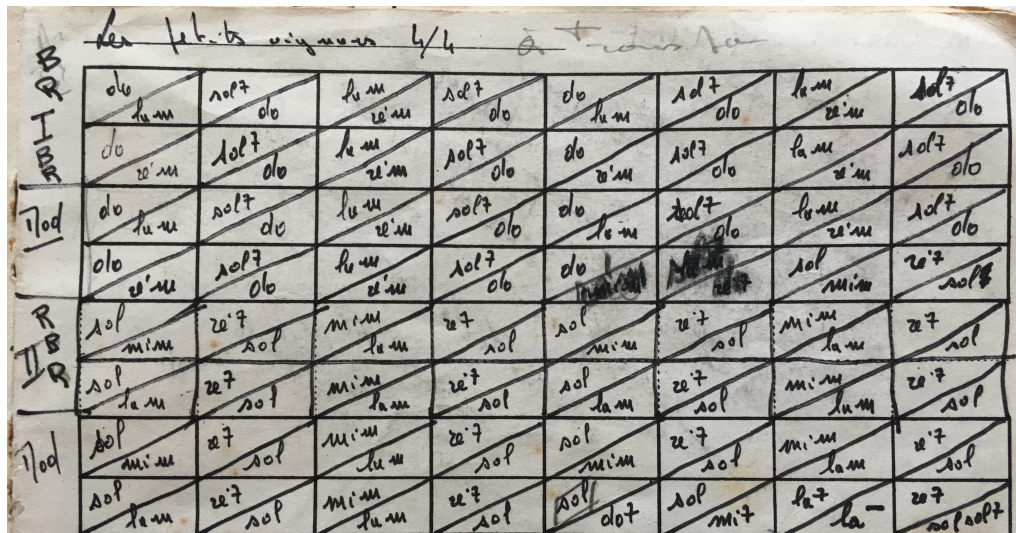 Les petits vignerons 4/4 à
B R I B R
do la m sol7 do la m ré m sol7 do do la m sol7 do la m ré m sol7 do
do ré m sol7 do la m ré m sol7 do do ré m sol7 do la m ré m sol7 do
Mod do la m sol7 do la m ré m sol7 do do la m sol7 do la m ré m sol7 do
do ré m sol7 do la m ré m sol7 do do sol mi m ré7 sol7
R B II R
sol mi m ré7 sol mi m la m ré7 sol sol mi m ré7 sol mi m la m ré7 sol
sol la m ré7 sol mi m la m ré7 sol sol la m ré7 sol mi m la m ré7 sol
Mod sol mi m ré7 sol mi m la m ré7 sol sol mi m ré7 sol mi m la m ré7 sol
sol la m ré7 sol mi m la m ré7 sol sol do7 sol mi7 la7 la- ré7 sol sol7